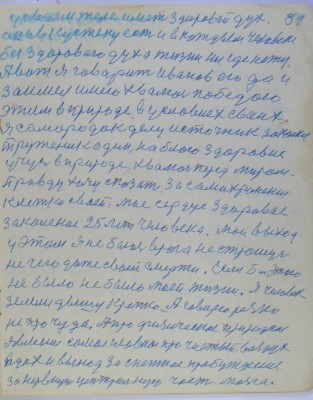 здоровом теле имеет здоровый дух. 82
я в и в каждом человеке
без здорового духа жизни ни где нету.
А вот я говорит Иванов его да и
заимел имею хвалюсь победою
этим в природе. в условиях своих
я самородок делу источник закалки
труженик один, на благо здоровие
учусь в природе, хвалюсь перед миром.
Правду хочу сказать за самохранение
клетки своей. мое сердце здоровое
закаленое 25 лет человека. Мой выход
у этом я не боюсь врага не страшусь
не чего даже своей смерти. Если б этого
не было не было моей жизни. Я человек
земли дышу крепко. А говорю резко
не про чуда. А про физическое природное
явление самое первое про чистый воздух
вдох и выход за снежное пробуждение
за нервную центральную часть мозга.